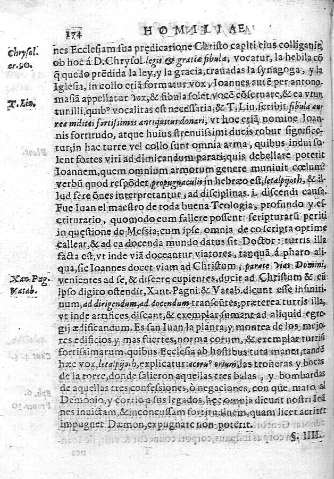 174
HOMILIAE
nes Ecclesiam sua predicatione Christo capiti eius colligant,
Chrysol.
ob hoc á D. Chrysol. legis & gratiæ fibula, vocatur, la hebilla cõ
quedo prẽdida la ley, y la gracia, trauadas la synagoga, y la
Iglesia, in collo etiã formatur vox, Ioannes autẽ per antono-
T. Liu.
masiã appellatur vox, & fibula solet vocẽ cõseruare, & ea vtun
tur illi, quibus vocalitas est necessaria, & T. Liu. scribit. fibula au
rea milites fortissimos antiquitus donari, vt hoc etiã nomine Ioan-
nis fortitudo, atque huius strenuissimi ducis robur significe-
tur, in hac turre vel collo sunt omnia arma, quibus indui so-
lent fortes viri ad dimicandum parati, quis debellare poterit
Ioannem, quem omnium armorum genere muniuit
verbũ quod respõdet, propugnaculis in hebreo est, letalpijoth, &
lud sere õnes interpretantur, ad disciplinas. i. discendi causa.
Fue Iuan el maestro de toda buena Teologia, profundo y es-
criturario, quomodo eum fallere possent scripturarũ periti
in questione de Messia; cum ipse omnia de eo scripta optime
callear, & ad ea docenda mundo datus sit. Doctor: turris illa
facta est, vt inde viã doceantur viatores, tanquã á pharo ali-
qua, sic Ioannes docet viam ad Christum, parate vias Domini,
venientes ad se, & discere cupientes, ducit ad Christum & eũ
Xan. Pag.
ipso digito ostendit, Xan. Pagnini. & Vatab. dicunt esse infiniti-
Vatab.
num, ad dirigendum, ad docendum transeũtes, præterea turris illa,
vt inde artifices discant, & exemplar sumant ad aliquid egre-
giũ ædificandum. Es san Iuan la planta, y montea de los mejo-
res edificios, y mas fuertes, norma eorum, & exemplar turriũ
fortissimarum. quibus Ecclesia ab hostibus tuta manet, tandẽ
hæc vox, letalpijoth, explicatur las troñeras y bocas
de la torre, donde salieron aquellas tres balas, y bombardas
de aquellas tres confessiones, õ negaciones, con que mato al
Demonio, y corrio a sus legados, hec omnia dicunt nostri Ioã
nes inuictam, & inconcussam fortitudinem, quam licet acriter
impugnet Dæmon, expugnare non poterit.
S. IIII.